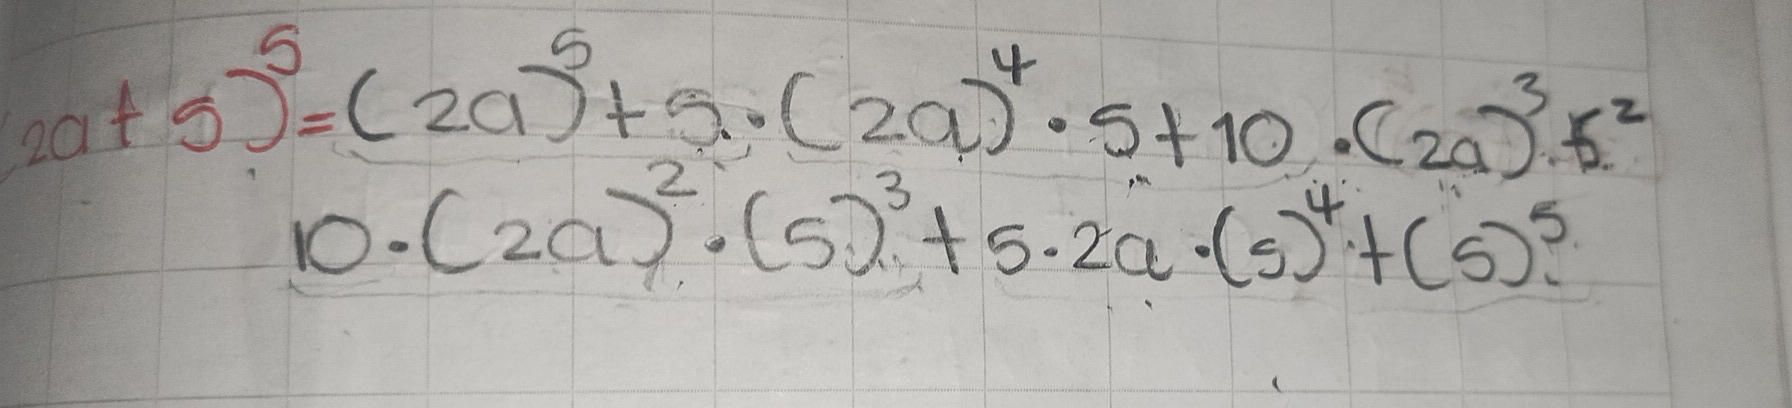 (2a+5)⁵=(2a)⁵+5·(2a)⁴·5+10·(2a)³·5²
10·(2a)²·(5)³+5·2a·(5)⁴+(5)⁵